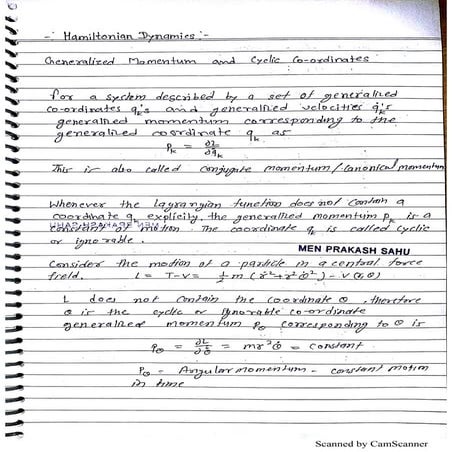 -: Hamiltonian Dynamics :-
Generalized Momentum and Cyclic Co-ordinates
For a system described by a set of generalized
co-ordinates qₖ's and generalized velocities q̇ₖ's
generalized momentum corresponding to the
generalized coordinate qₖ as
Pₖ = ∂L/∂q̇ₖ
This is also called conjugate momentum/canonical momentum
Whenever the lagrangian function does not contain a
coordinate qₖ explicity, the generalized momentum pₖ is a
constant of motion. The coordinate qₖ is called cyclic
or ignorable.
MEN PRAKASH SAHU
Consider the motion of a particle in a central force
field. L = T-V = ½ m (ṙ²+r²θ̇²) - V(r,θ)
L does not contain the coordinate θ, therefore
θ is the cyclic or ignorable co-ordinate
generalized momentum pθ corresponding to θ is
pθ = ∂L/∂θ̇ = mr²θ̇ = constant
Pθ = Angular momentum - constant motion
in time
Scanned by CamScanner